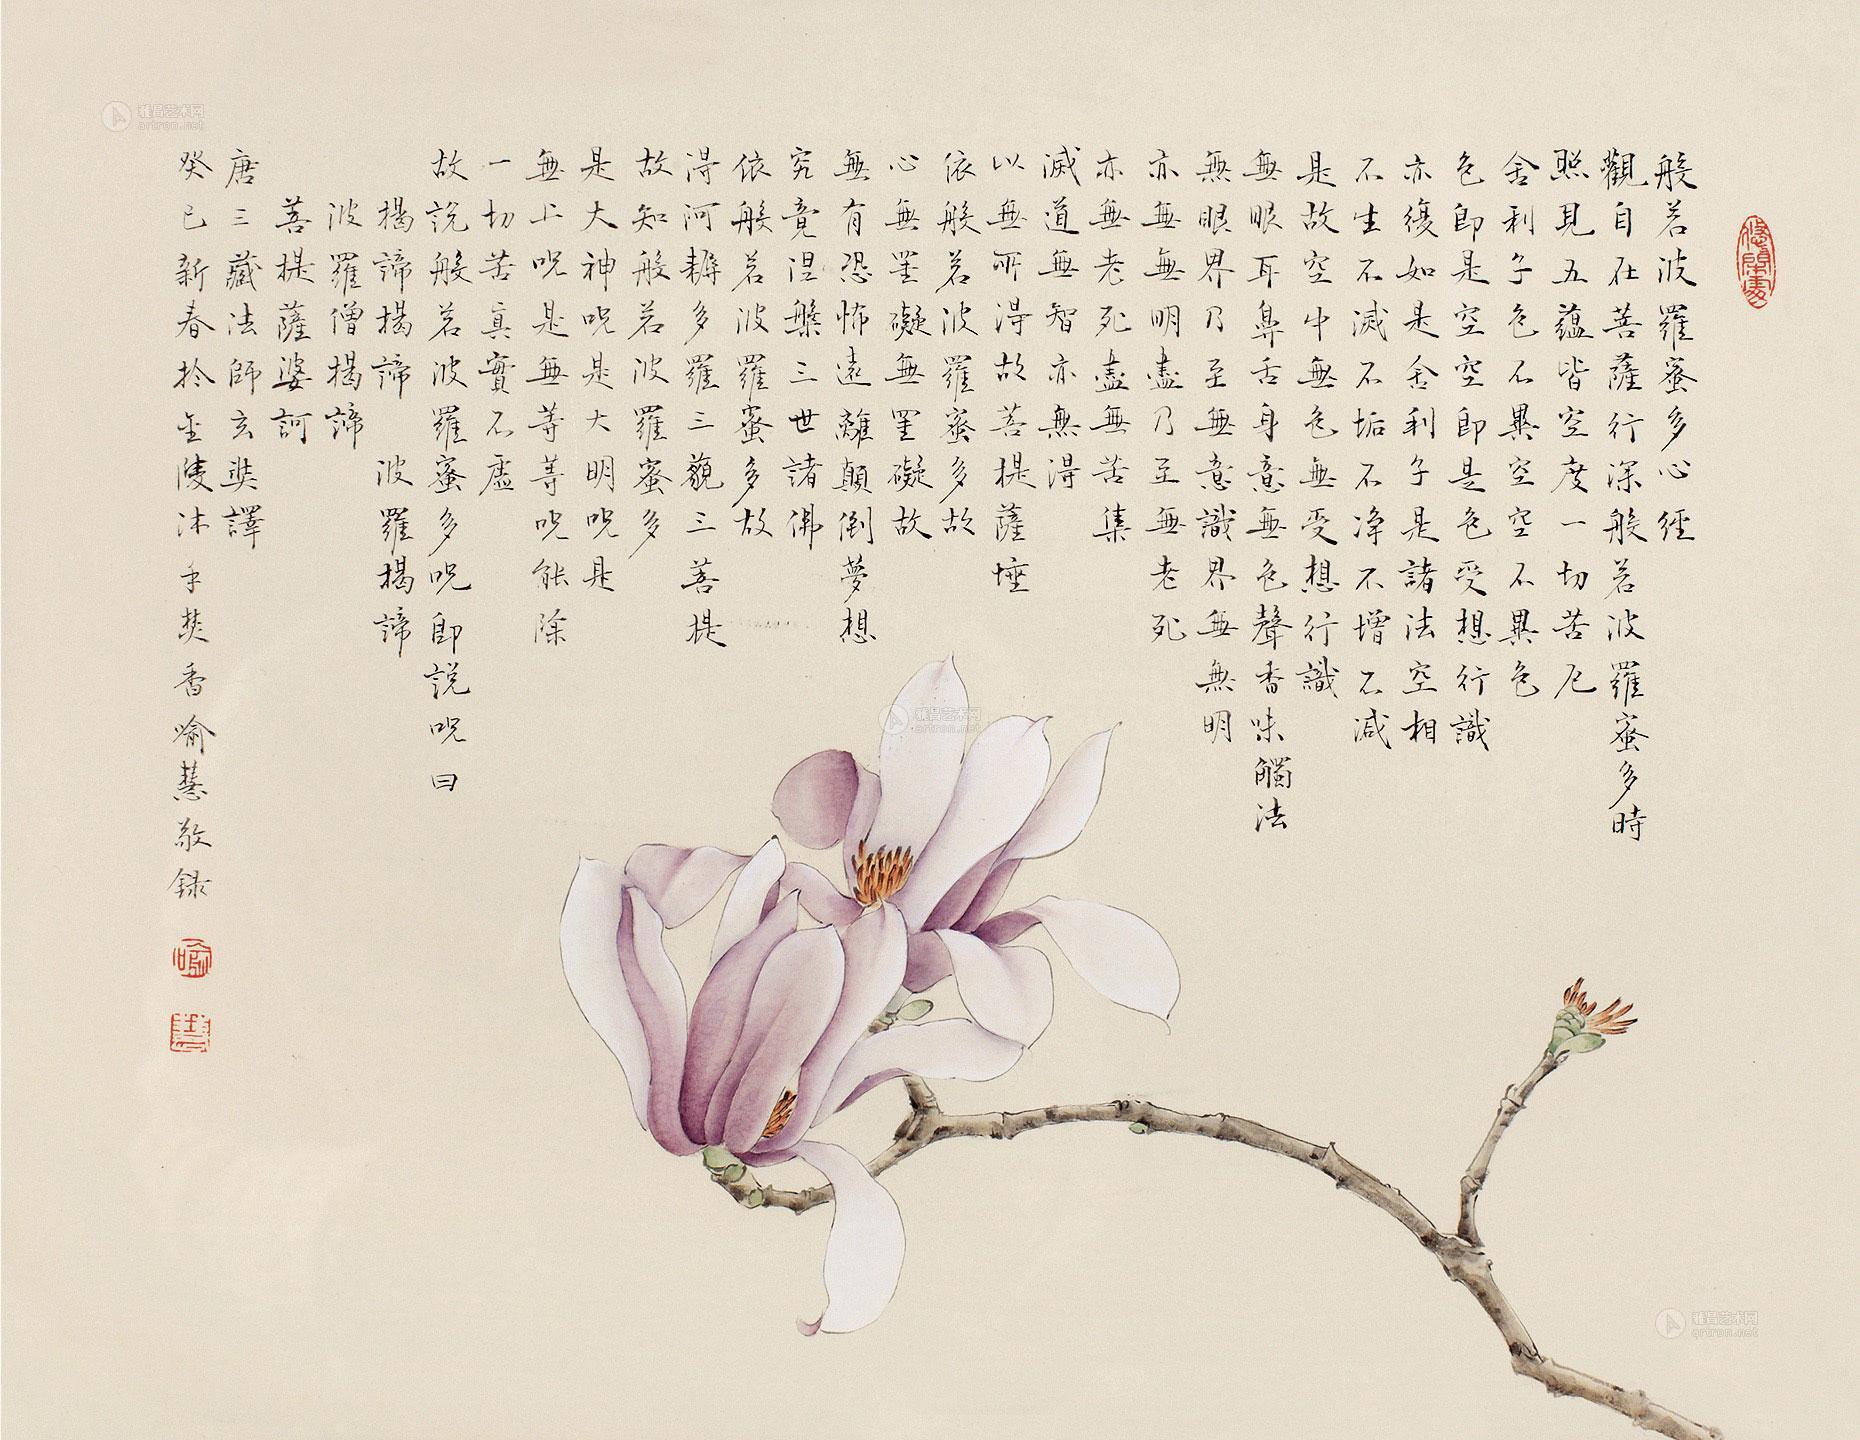 般若波羅蜜多心經
觀自在菩薩行深般若波羅蜜多時
照見五蘊皆空度一切苦厄
舍利子色不異空空不異色
色即是空空即是色受想行識
亦復如是舍利子是諸法空相
不生不滅不垢不淨不增不減
是故空中無色無受想行識
無眼耳鼻舌身意無色聲香味觸法
無眼界乃至無意識界無無明
亦無無明盡乃至無老死
亦無老死盡無苦集
滅道無智亦無得
以無所得故菩提薩埵
依般若波羅蜜多故
心無罣礙無罣礙故
無有恐怖遠離顛倒夢想
究竟涅槃三世諸佛
依般若波羅蜜多故
得阿耨多羅三藐三菩提
故知般若波羅蜜多
是大神呪是大明呪是
無上呪是無等等呪能除
一切苦真實不虛
故說般若波羅蜜多呪即說呪曰
揭諦揭諦 波羅揭諦
波羅僧揭諦
菩提薩婆訶
唐三藏法師玄奘譯
癸巳新春於金陵沐手焚香喻慧敬録
喻
慧
雅昌艺术网
artron.net
雅昌艺术网
artron.net
雅昌艺术网
artron.net